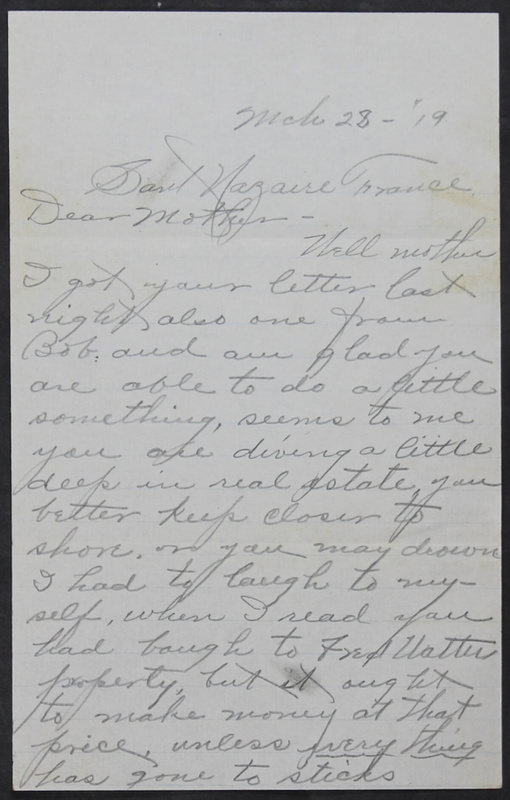 Mch 28 - '19
Sant Nazaire France.
Dear Mother -
Well mother
I got your letter last
night also one from
Bob. and am glad you
are able to do a little
something, seems to me
you are diving a little
deep in real estate, you
better keep closer to
shore. or you may drown
I had to laugh to my-
self, when I read you
had bough to Fred
property, but it ought
to make money at that
price, unless every thing
has gone to sticks